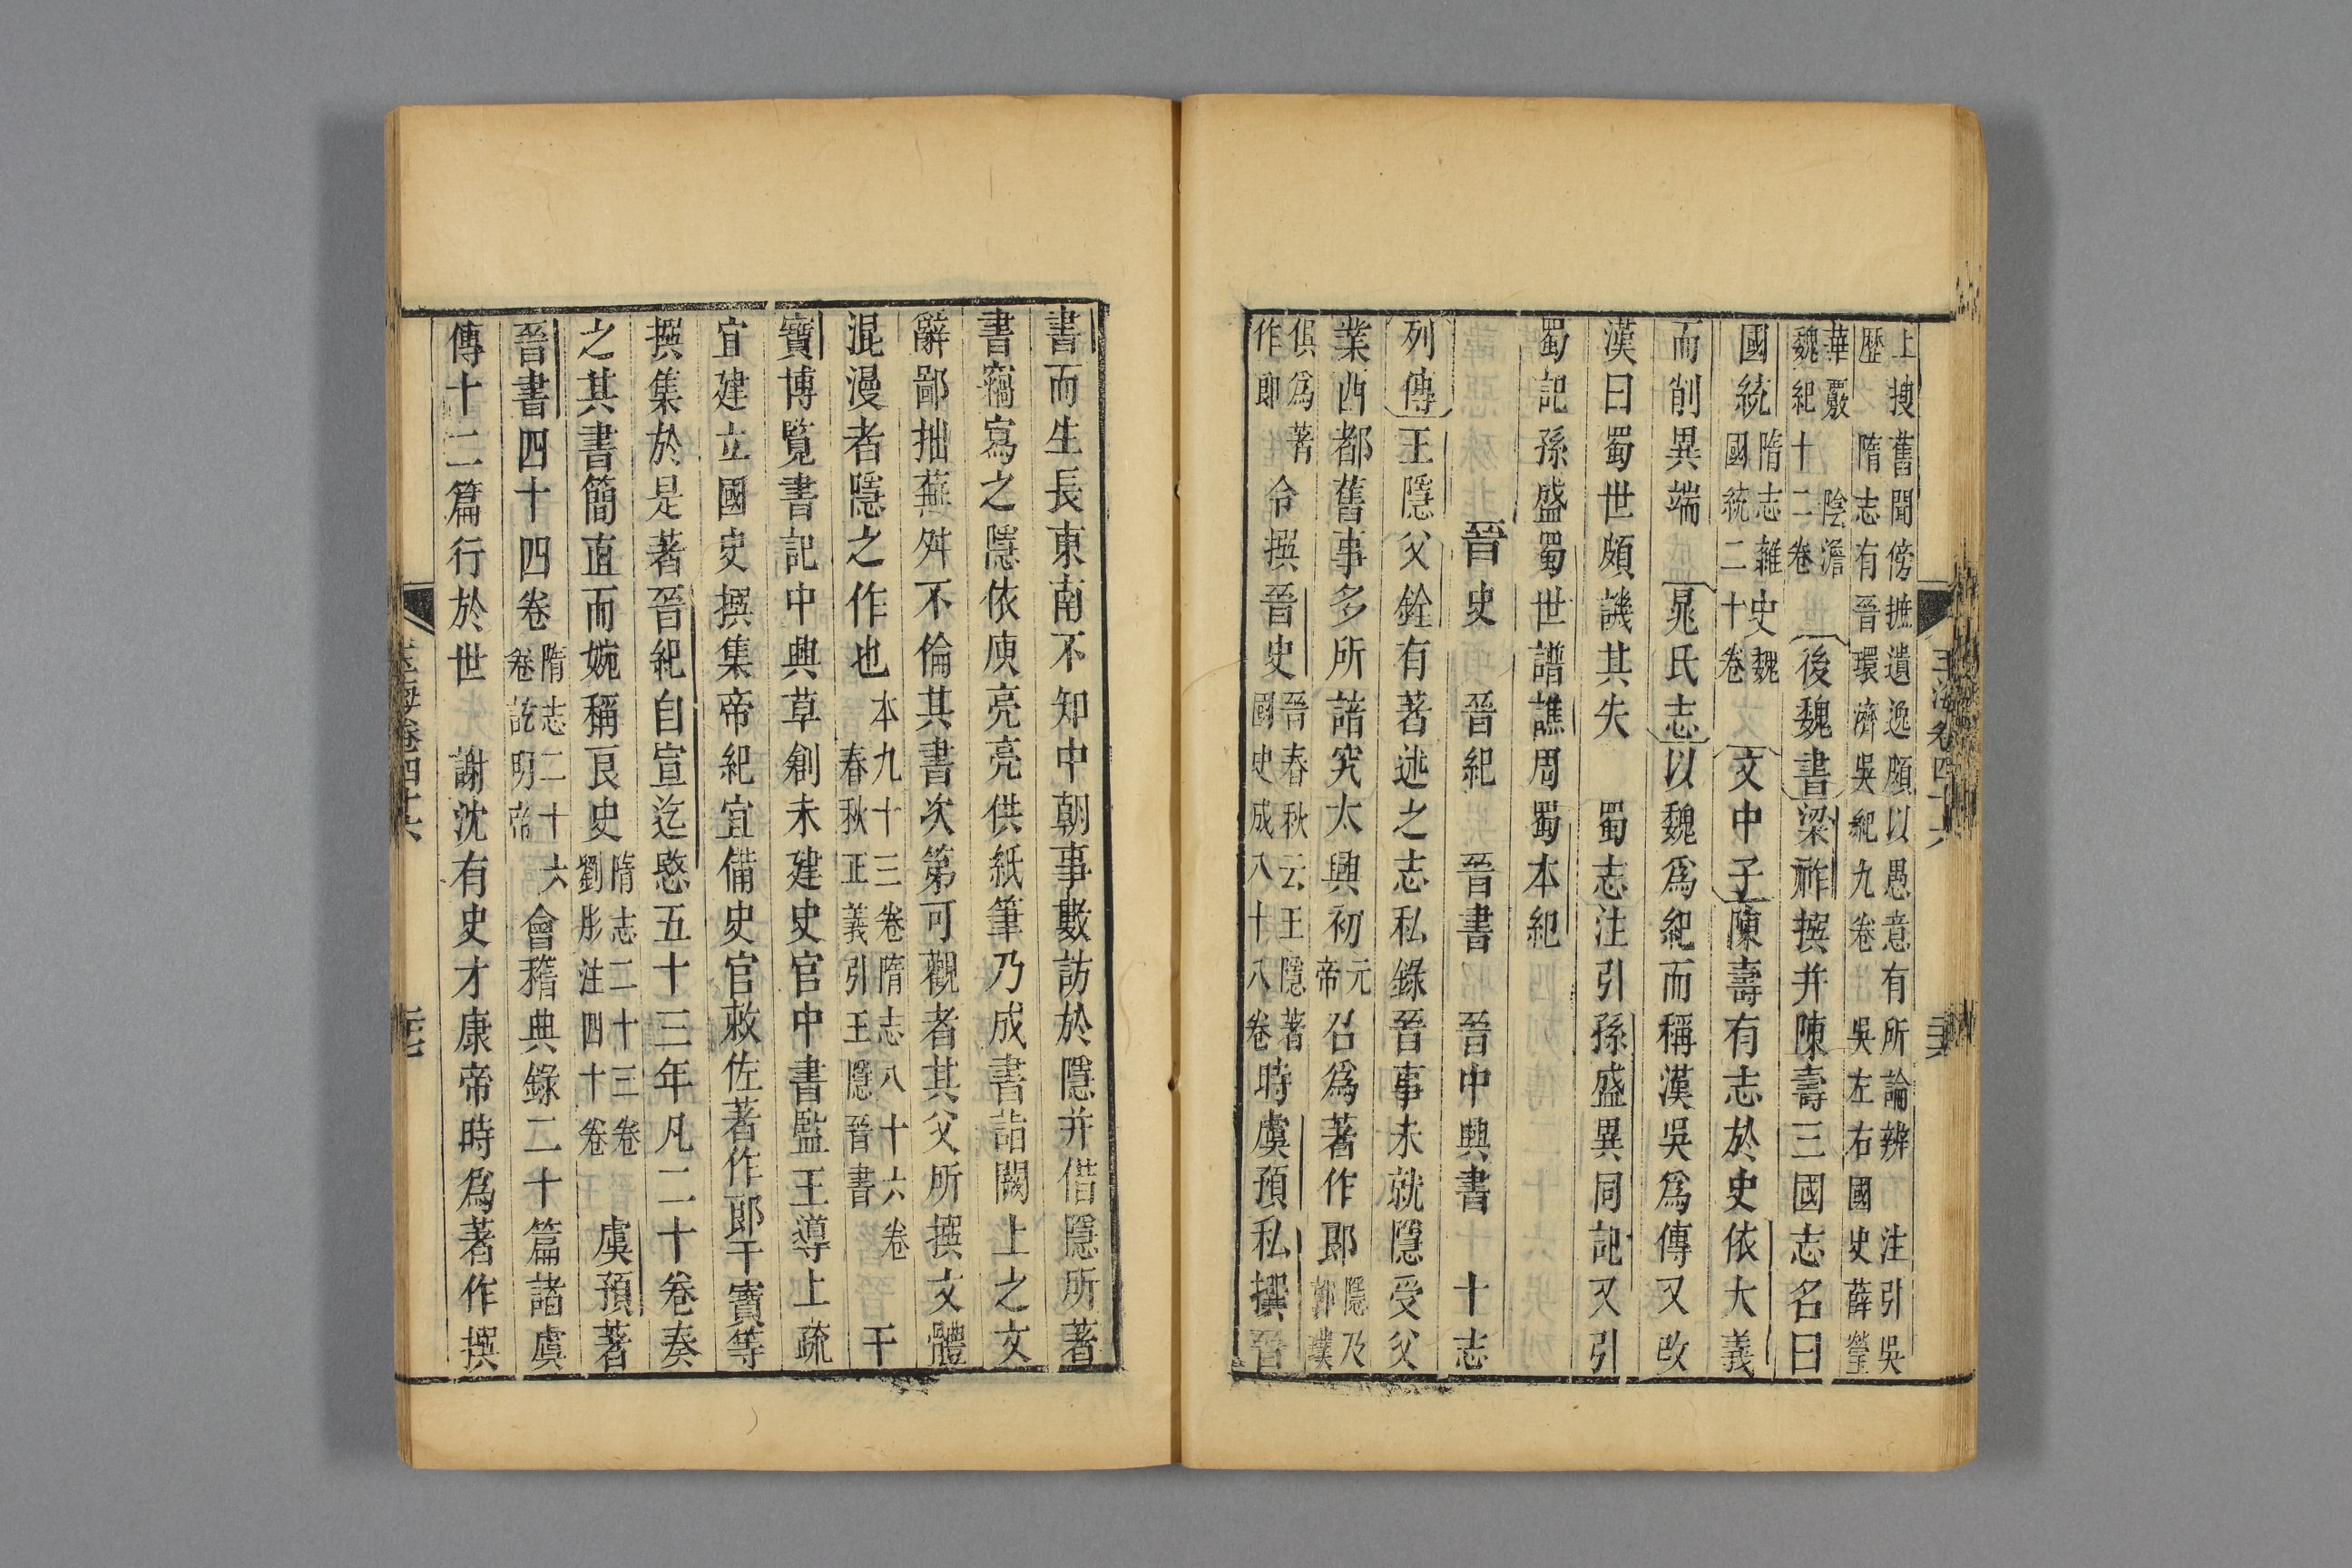 上搜舊聞傍摭遺逸頗以愚意有所論辨　注引吳
歷　隋志有晉環濟吳紀九卷　吳左右國史薛瑩
華覈　陰澹
魏紀十二卷
後魏書梁祚撰并陳壽三國志名曰
國統
隋志雜史魏
國統二十卷
文中子陳壽有志於史依大義
而削異端　晁氏志以魏爲紀而稱漢吳爲傳又改
漢曰蜀世頗譏其失　蜀志注引孫盛異同記又引
蜀記孫盛蜀世譜譙周蜀本紀
晉史　晉紀　晉書　晉中興書　十志
列傳王隱父銓有著述之志私錄晉事未就隱受父
業西都舊事多所諳究太興初
元
帝
召爲著作郎
隱乃
郭璞
俱爲著
作郎
令撰晉史
晉春秋云王隱著
國史成八十八卷
時虞預私撰晉
書而生長東南不知中朝事數訪於隱并借隱所著
書竊寫之隱依庾亮亮供紙筆乃成書詣闕上之文
辭鄙拙蕪舛不倫其書次第可觀者其父所撰文體
混漫者隱之作也
本九十三卷隋志八十六卷
春秋正義引王隱晉書
干
寶博覽書記中興草創未建史官中書監王導上疏
宜建立國史撰集帝紀宜備史官敕佐著作郎干寶等
撰集於是著晉紀自宣迄愍五十三年凡二十卷奏
之其書簡直而婉稱良史
隋志二十三卷
劉彤注四十卷
虞預著
晉書四十四卷
隋志二十六
卷訖明帝
會稽典錄二十篇諸虞
傳十二篇行於世　謝沈有史才康帝時爲著作撰
玉海卷四十六